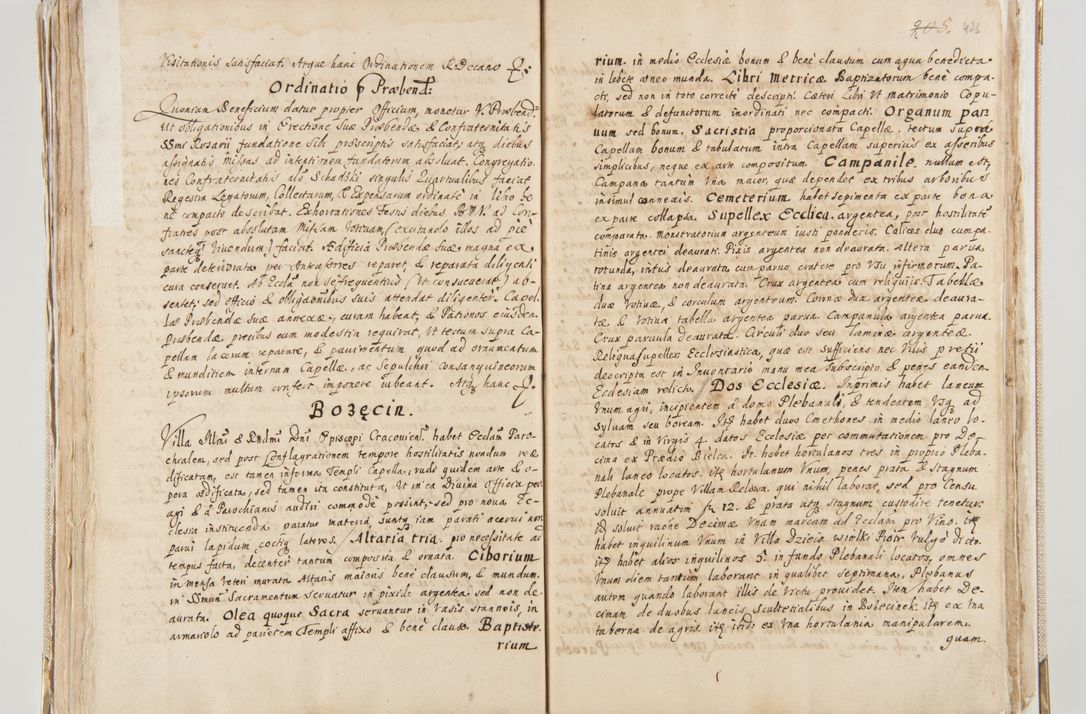 Visitationis satisfaciat. Atque hanc Ordinationem R. Decano
Ordinatio p Præbend:
Quoniam Beneficium datur propter Officium, monetur V. Præbend.
Ut obligationibus in Erectione suæ Præbendæ & Confraternitatis
SSmi Rosarii fundatione sibi præscriptis satisfaciat, atq diebus
assignatis missas ad intentionem fundatorum absoluat. Congregatio
nes Confraternitatis als Schadzki singulis Quartualibus faciat
Regestra Legatorum, Collectarum, & Expensarum ordinate in libro be
ne compacto describat. Exhortationes festis diebus B. M. V. ad Con
fratres post absolutam Missam Votiuam, (excitando illos ad piè
sancteq Viuendum) faciat. Ædificia Præbendæ suæ magna ex
parte deteriorata per Antecessores reparet, & reparata diligenti
cura conseruet. Ab Eccla non se frequentius (Ut consueuerat) ab-
sentet, sed officio & obligaonibus suis attendat diligenter. Capel
læ Præbendæ suæ annexæ, curam habeat, & Patronos eiusdem
Præbendæ precibus cum modestia requirat, Ut tectum supra Ca
pellam lacerum reparare, & pauimentum quod ad ornamentum
& munditiem internam Capellæ, ac Sepulchri consanguineorum
ipsorum multum confert imponere iubeant. Atq hanc
Bozęcin.
Villa Illmi & Rndmi Dni Episcopi Cracouien. habet Ecclam Paro-
chialem, sed post Conflagrationem tempore hostilitatis nondum reæ
dificatam, est tamen informa Templi Capella, rudi quidem arte & o-
pera ædificata, sed tamen ita constituta, Ut in ea Diuina Officia per
agi & à Parochianis audiri commodè possint, sed pro noua Ec-
clesia instituenda paratur materia, suntq iam parati acerui non
parui lapidum, coctiq lateres. Altaria tria. pro necessitate ad
tempus facta, decenter tantum composita & ornata. Ciborium
in mensa Veteri murata Altaris maioris bene clausum, & mundum.
in SSmum Sacramentum seruatur in pixide argentea sed non de-
aurata. Olea quoque Sacra seruantur in Vasis stanneis, in
armariolo ad parietem Templi affixo & bene clauso. Baptiste-
rium
205. 421
rium. in medio Ecclesiæ bonum & benè clausum cum aqua benedicta
in lebete æneo munda. Libri Metricæ Baptizatorum benè compa-
cti, sed non in toto correctè descripti. Cæteri Libri Ut matrimonio Copu-
latorum & defunctorum inordinati nec compacti. Organum par
uum sed bonum. Sacristia proporcionata Capellæ. tectum supra
Capellam bonum & tabulatum intra Capellam superius ex asseribus
simplicibus, neque ex arte compositum. Campanile. nullum est,
Campana tantum Vna maior, quæ dependet ex tribus arboribus
insimul connexis. Cemeterium habet sepimenta ex parte bona
ex parte collapsa. Supellex Ecclica. argentea, post hostilitatē
comparata. Monstratorium argenteum iusti ponderis. Calices duo cum pa-
tinis argentei deaurati. Pixis argentea non deaurata. Altera parua
rotunda, intus deaurata, cum paruo cratere pro Vsu infirmorum. Pa-
tina argentea non deaurata. Crux argentea cum reliquiis. Tabellæ
duæ Votiuæ, & corculum argenteum. Coronæ duæ argenteæ deaura-
tæ & Votiua tabella argentea parua. Campanula argentea parua.
Crux paruula deaurata. Circuli duo seu laminæ argenteæ.
Reliqua supellex Ecclesiastica, quæ est sufficiens nec Vilis pretii
descripta est in Inuentario manu mea subscripto & penes eanden
Ecclesiam relicto. Dos Ecclesiæ. Inprimis habet laneum
Vnum agri, incipientem à domo Plebanali, & tendentem Vsq ad
syluam seu boream. Itē habet duos Cmethones in medio laneo lo-
catos & in Virgis 4. datos Ecclesiæ per commutationem pro De
cima ex Prædio Bielce. It. habet hortulanos tres in proprio Pleba
nali laneo locatos. itē hortulanum Vnum, penes prata & stagnum
Plebanale prope Villam Relowa. qui nihil laborat, sed pro Censu
soluit annuatim fl 12. & prata atq stagnum custodire tenetur.
it solvit raōne Decimæ Vnam marcam ad Ecclam pro Vino. itē
habet inquilinum Vnum in Villa Dzieco wielki Piotr Vulgo dicto.
itē habet alios inquilinos 5. in fundo Plebanali locatos, omnes
Vnum diem tantum laborant in qualibet septimana, Plebanus
autem quando laborant illis de Victu prouidet. Item habet De-
cimam de duobus laneis Scultetialibus in Bozecinek. itē ex Vna
taberna de agris. itē ibid: ex Vna hortulania manipularem.
quam